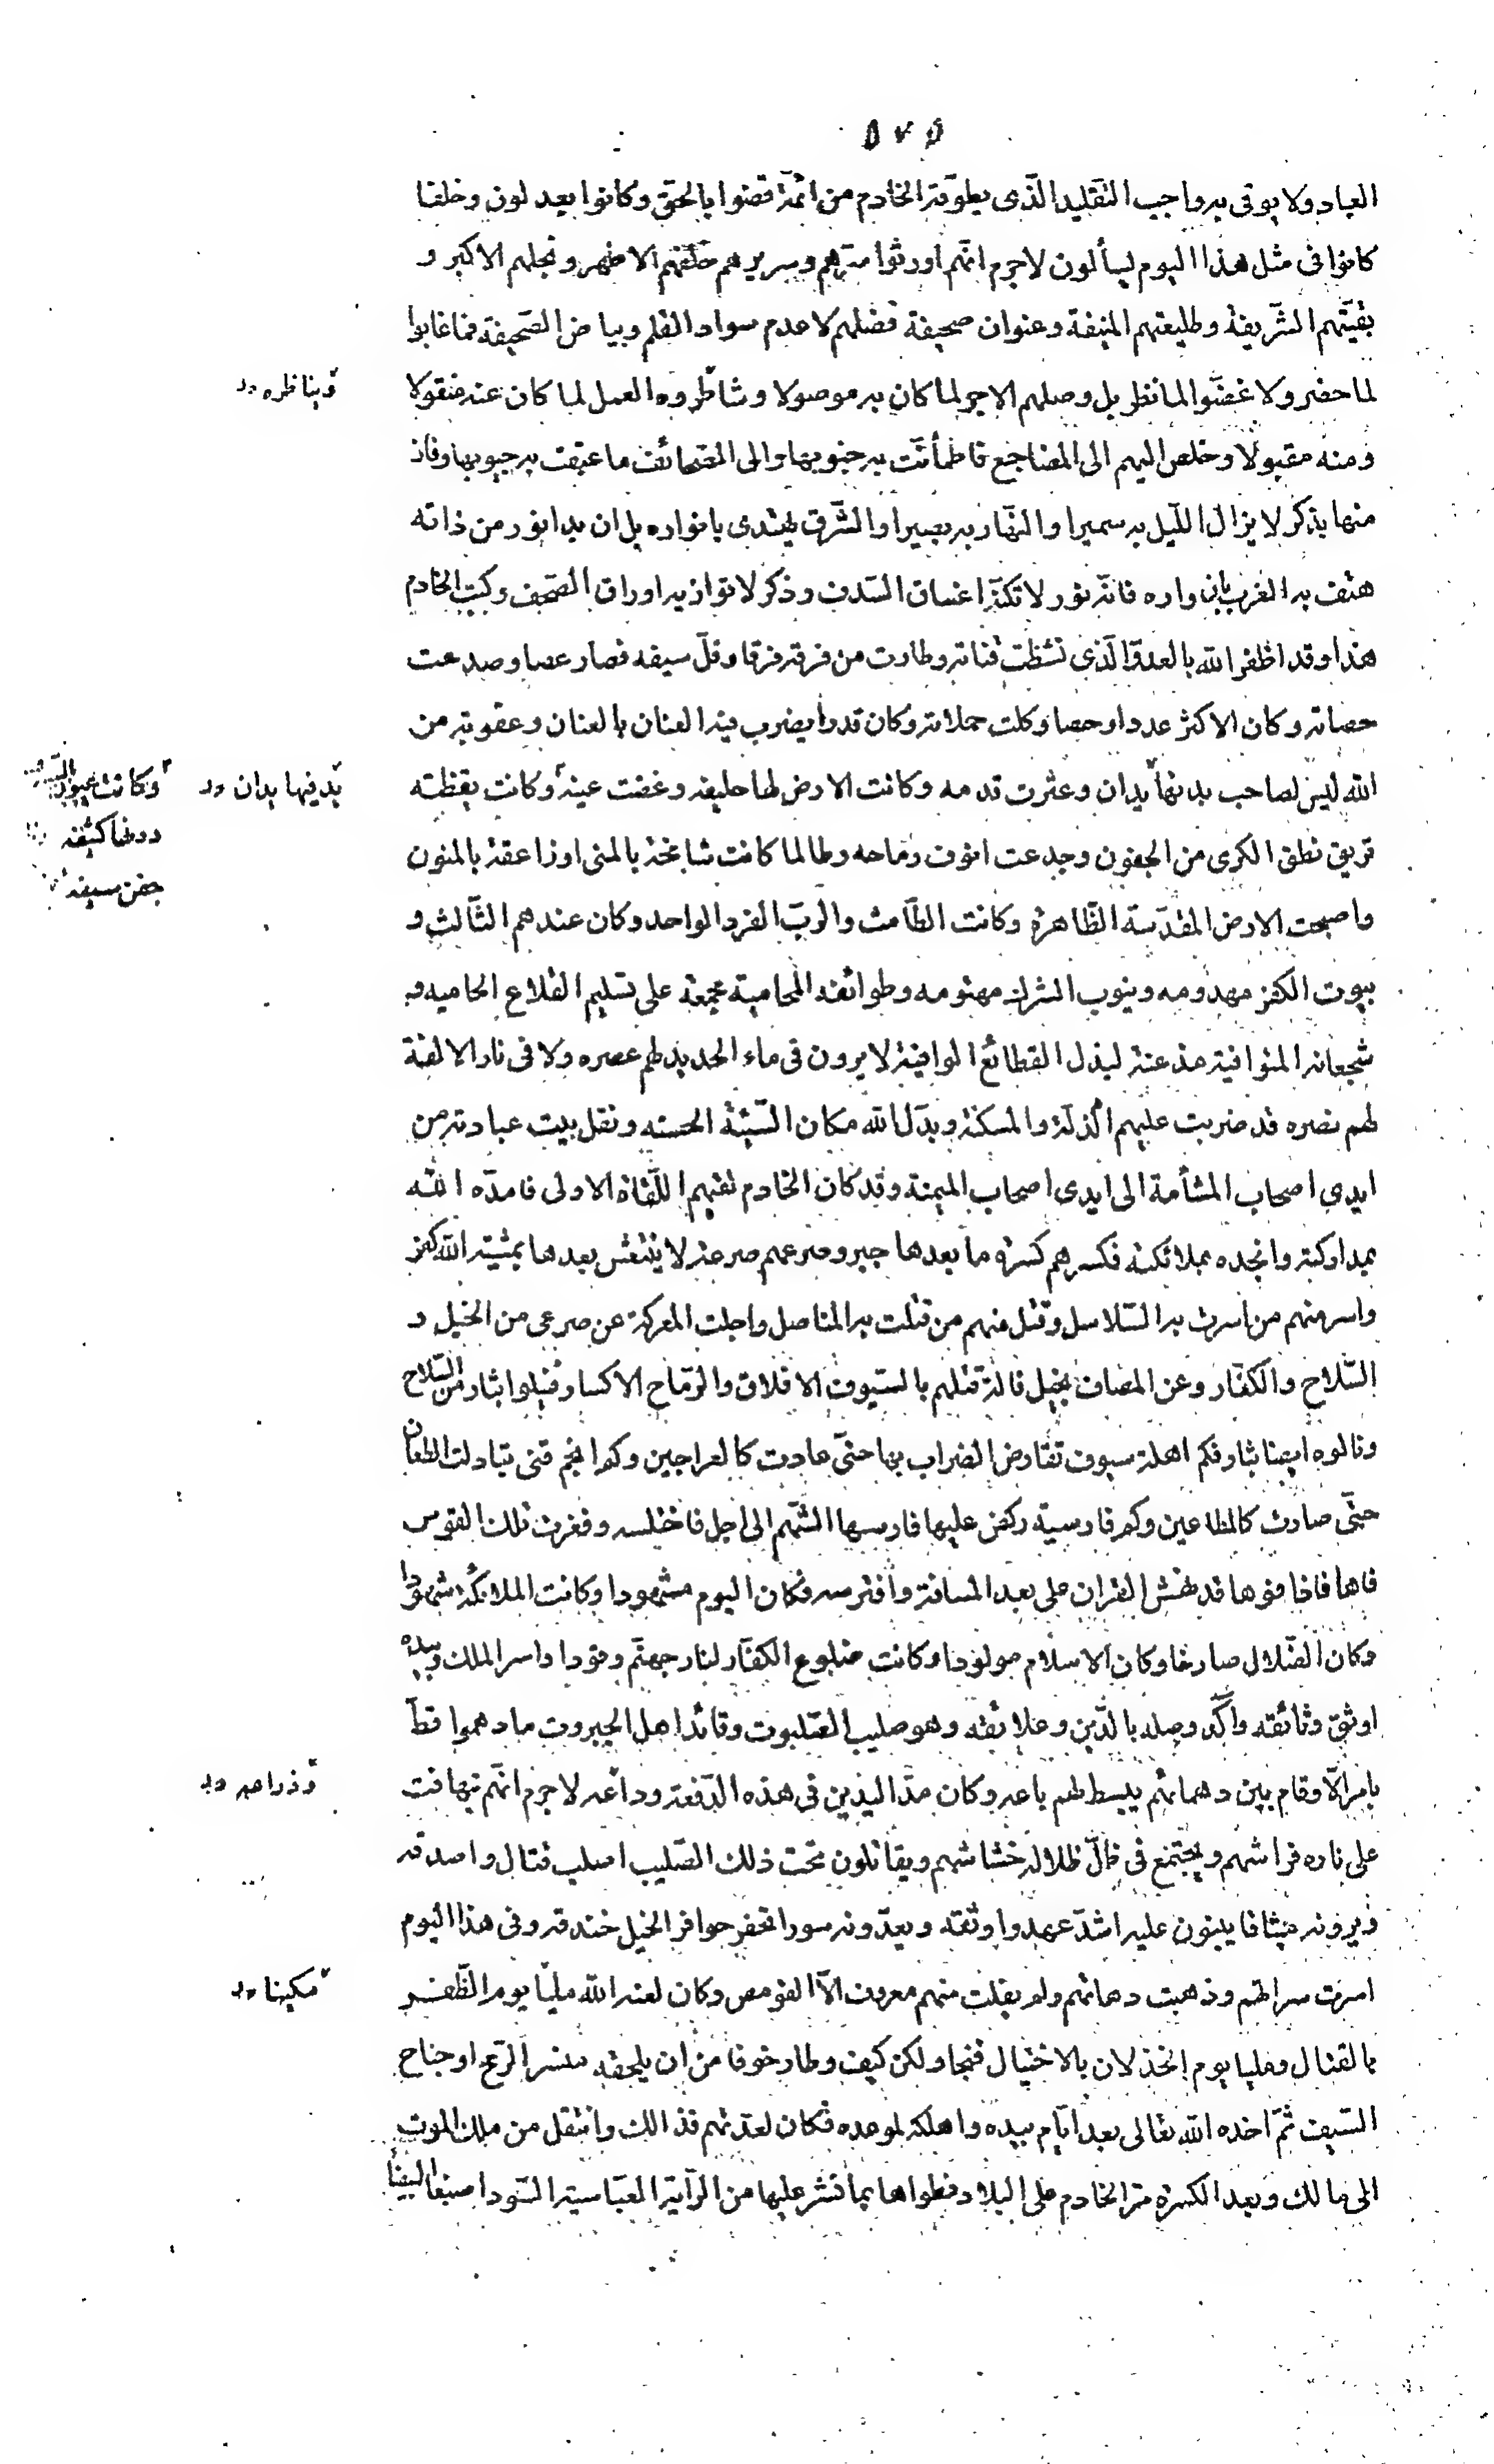 ٥٧٥
العباد ولا يوقى به واجب التقليد الذى يطوقه الخادم من ائمة قضوا بالحق وكانوا يعدلون وخلفا
كانوا فى مثل هذا اليوم ليسألون لا جرم انهم اورثوا سرهم وسريرهم خلفهم الاطهر ونجلهم الاكبر و
بقيتهم الشريفة وطليعتهم المنيفة وعنوان صحيفة فضلهم لا عدم سواد القلم وبياض الصحيفة فما غابوا
لما حضر ولا غضوا لما نظر بل وصلهم الاجر لما كان به موصولا وشاطروه العمل لما كان عنه منقولا
ومنه مقبولا وخلص اليهم الى المضاجع فاطمأنت به جنوبها والى الصحائف ما عبقت به جيوبها وفاز
منها بذكر لا يزال الليل به سميرا والنهار به بصيرا والشرق يهتدى بانواره بل ان بدا نور من ذاته
هتف به الغرب بان واره فانه نور لا تكنه اغساق السدف وذكر لا توازيه اوراق الصحف وكتب الخادم
هذا وقد اظفر الله بالعدو الذى تشظت قناته وطارت من فرقه فرقا وفل سيفه فصار عصا وصدعت
حصاته وكان الاكثر عددا وحصا وكلت حملاته وكان قدرا يضرب فيه العنان بالعنان وعقوبة من
الله ليس لصاحب يد بها يدان وعثرت قدمه وكانت الارض لها حليفه وغضت عينه وكانت يقظته
تريق نطق الكرى من الجفون وجدعت انوف رماحه وطالما كانت شامخة بالمنى او راعفة بالمنون
واصبحت الارض المقدسة الطاهرة وكانت الطامث والرب الفرد الواحد وكان عندهم الثالث و
بيوت الكفر مهدومه ونيوب الشرك مهتومه وطوائفه المحامية مجمعة على تسليم القلاع الحاميه و
شجعانه المتوافية مذعنة لبذل القطائع الوافية لا يرون فى ماء الحديد لهم عصره ولا فى نار الانفة
لهم نصره قد ضربت عليهم الذلة والمسكنة وبدل الله مكان السيئة الحسنه ونقل بيت عبادته من
ايدى اصحاب المشأمة الى ايدى اصحاب الميمنة وقد كان الخادم لقيهم اللقاة الاولى فامده الله
بمداركته وانجده بملائكته فكسرهم كسرة ما بعدها جبر وصرعهم صرعة لا ينتعش بعدها بمشية الله كفر
واسر منهم من اسرت به السلاسل وقتل منهم من قتلت به المناصل واجلت المعركة عن صرعى من الخيل و
السلاح والكفار وعن المصاف بخيل فانه قتلهم بالسيوف الافلاق والرماح الاكسار فنيلوا بثار من السلاح
ونالوه ايضا بثار فكم اهلة سيوف تقارض الضراب بها حتى عادت كالعراجين وكم انجم قنى تبادلت الطعان
حتى صارت كالمطاعين وكم فارسية ركض عليها فارسها الشهم الى اجل فاختلسه وفغرت تلك القوس
فاها فاذا فوها قد نهش القران على بعد المسافة وافترسه فكان اليوم مشهودا وكانت الملائكة شهودا
وكان الضلال صارخا وكان الاسلام مولودا وكانت ضلوع الكفار لنار جهنم وقودا واسر الملك وبيده
اوثق وثائقه واكد وصله بالدين وعلائقه وهو صليب الصلبوت وقائد اهل الجبروت ما دهموا قط
بامر الا وقام بين دهمائهم يبسط لهم باعه وكان مد اليدين فى هذه الدفعة وداعه لا جرم انهم تهافت
على ناره فراشهم ويجتمع فى ظل ظلاله خشاشهم ويقاتلون تحت ذلك الصليب اصلب قتال واصدقه
ويرونه ميثاقا يبنون عليه اشد عهد واوثقه ويعدونه سورا تحفر حوافر الخيل خندقه وفى هذا اليوم
اسرت سراتهم وذهبت دهاتهم ولم يفلت منهم معروف الا القومص وكان لعنه الله مليا يوم الظفر
بالقتال ومليا يوم الخذلان بالاختيال فنجا ولكن كيف وطار خوفا من ان يلحقه منسر الرمح او جناح
السيف ثم اخذه الله تعالى بعد ايام بيده واهلكه لموعده فكان لعدتهم فذالك وانتقل من ملك الموت
الى مالك وبعد الكسرة مر الخادم على البلاد فطواها بما نشر عليها من الراية العباسية السودا صبغا البيضا
ويناظره
يد فيها يدان
وكانت عيون
دونها كثيفه
جفن سيفه
وذراعه
مكينا